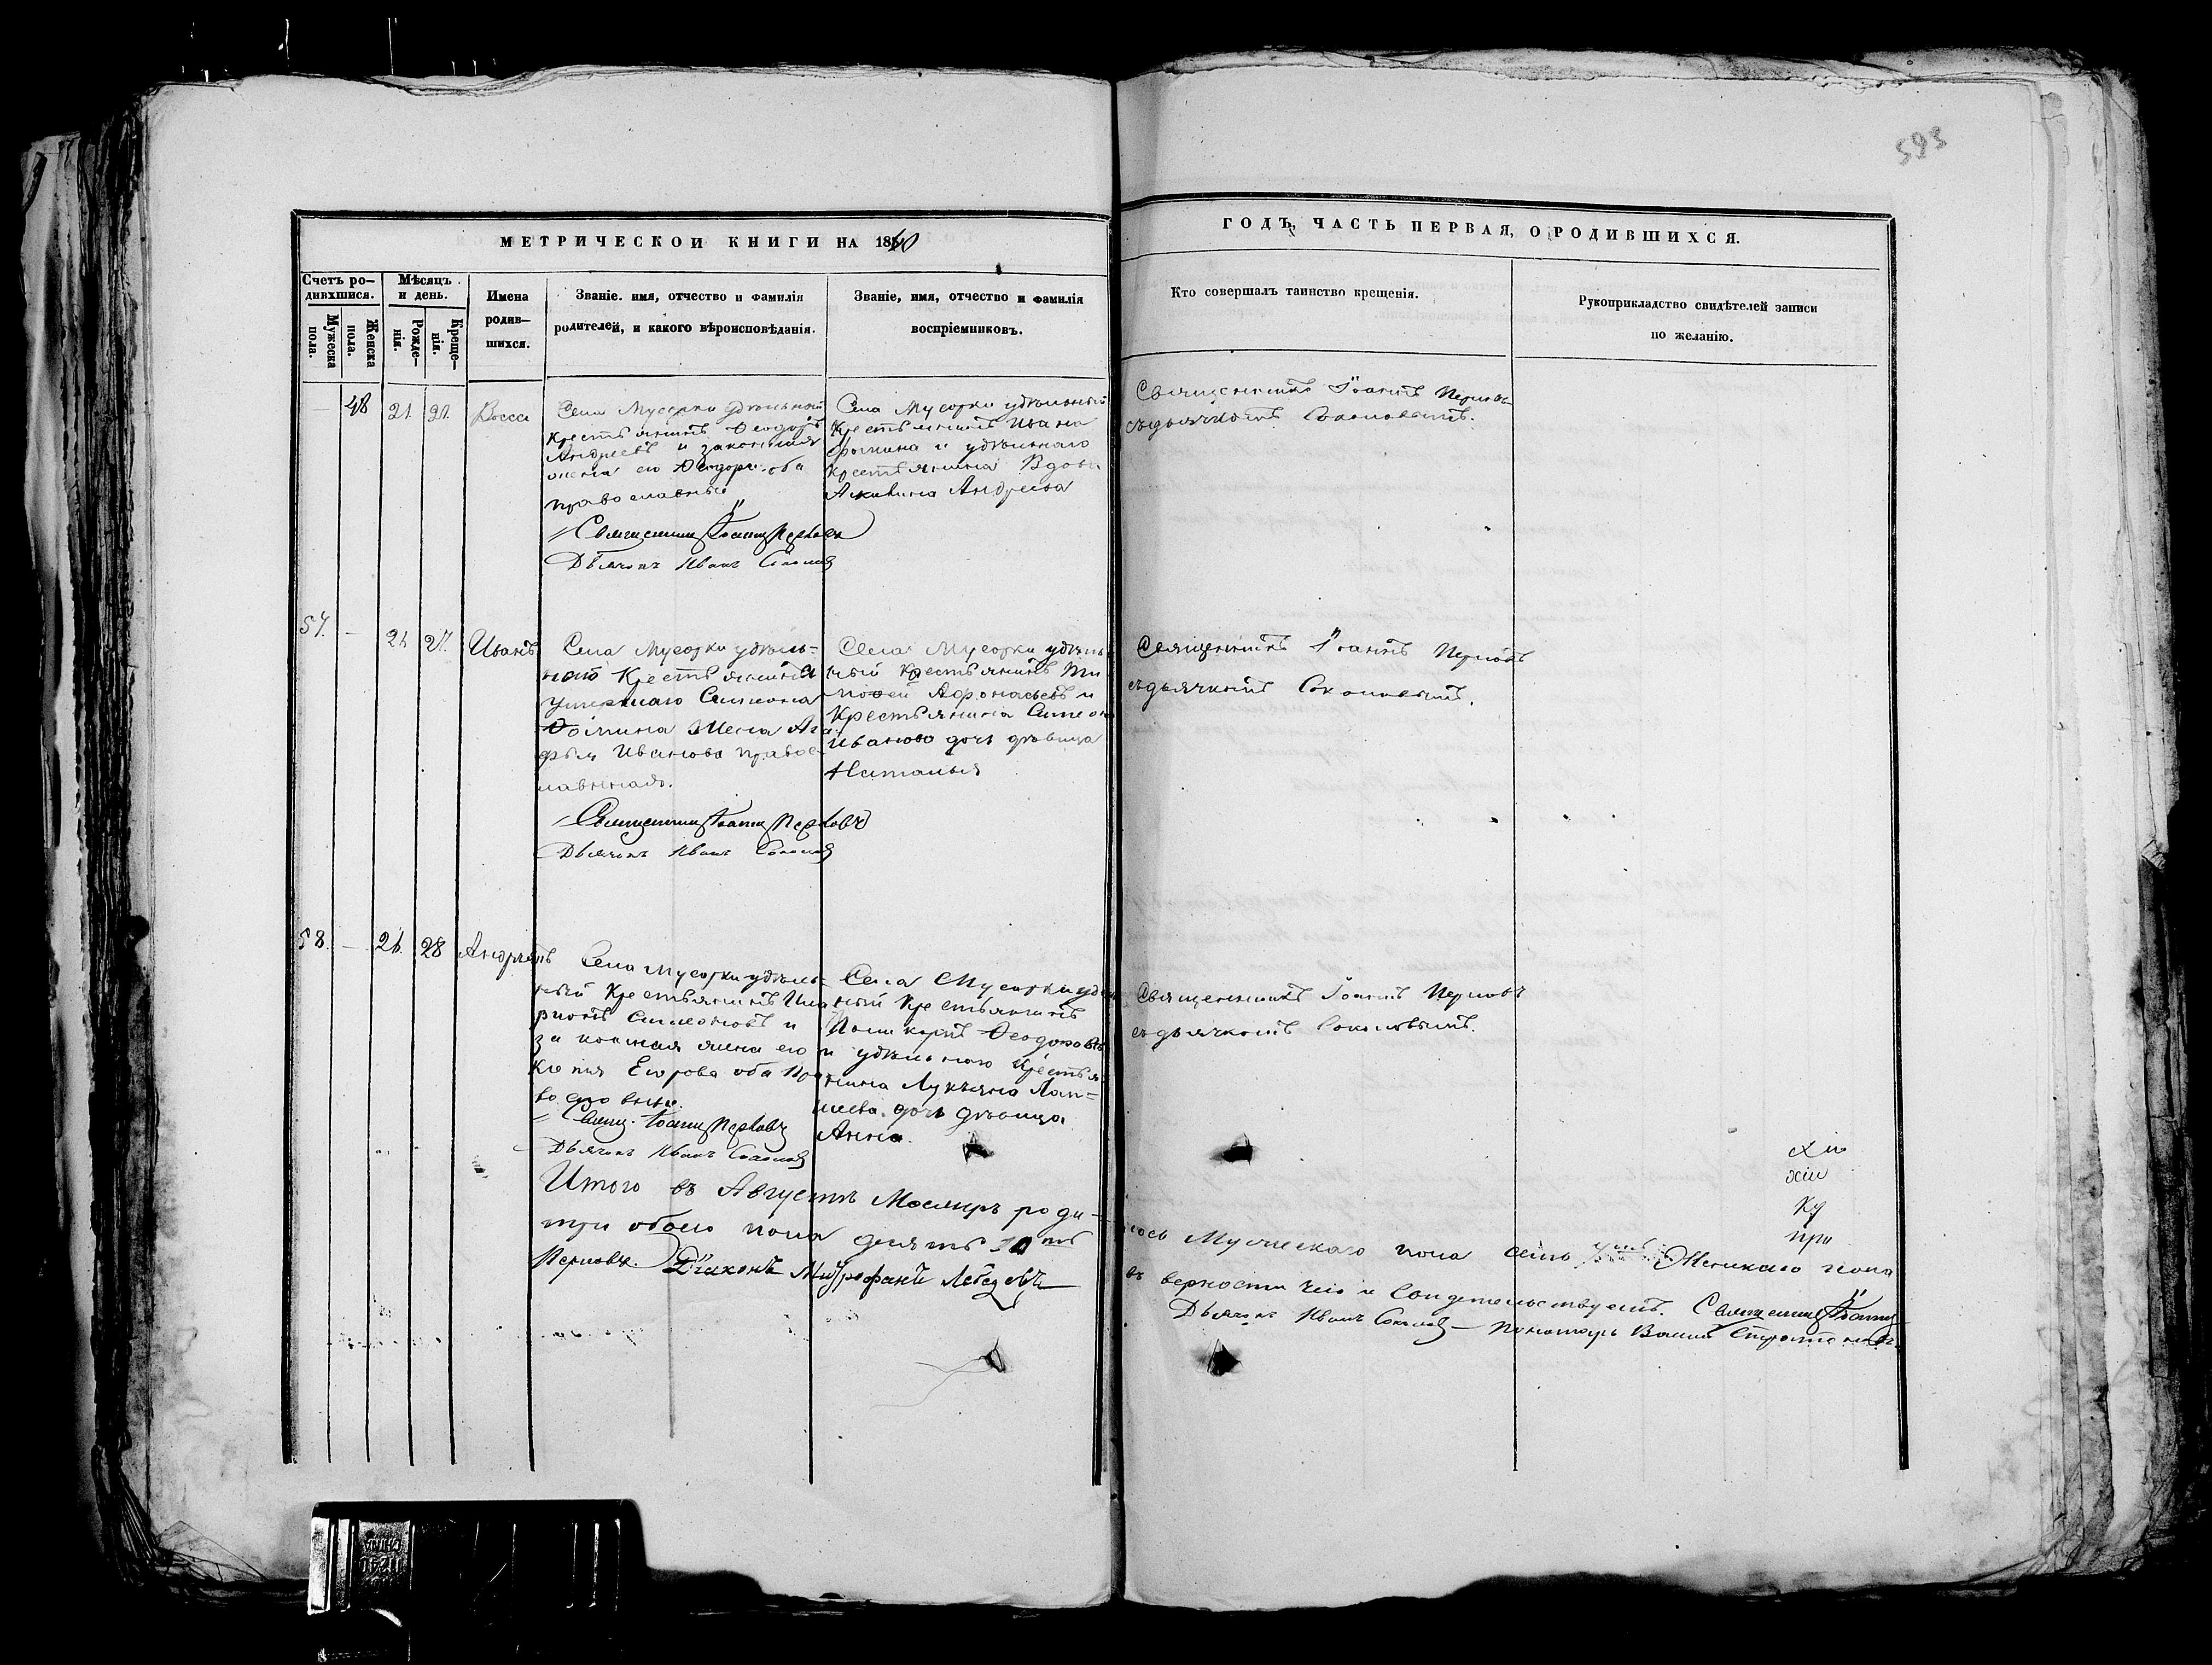 593
МЕТРИЧЕСКОЙ КНИГИ НА 1860
ГОДЪ, ЧАСТЬ ПЕРВАЯ, О РОДИВШИХСЯ.
Счетъ ро-
дивхшися.
Мужеска
пола.
Женска
пола.
Мѣсяцъ
и день.
Рожде-
нія.
Креще-
нія.
Имена
родив-
шихся.
Званіе. имя, отчество и фамилія
родителей, и какого вѣроисповѣданія.
Званіе, имя, отчество и фамилія
воспріемниковъ.
Кто совершалъ таинство крещенія.
Рукоприкладство свидѣтелей записи
по желанію.
48 21 21 Васса
Села Мусорки удѣльный
крестьянинъ Ѳеодоръ
Андреевъ и законная
жена его оба
православные
Священникъ Іоаннъ Перловъ
Дьячокъ Иванъ Соколовъ
Села Мусорки удѣльный
крестьянинъ Ивана
Фомина и удѣльнаго
крестьянина Вдова
Акилина Андреева
Священникъ Іоаннъ Перловъ
съ дьячкомъ Соколовымъ.
57. — 26 27. Иванъ
Села Мусорки удѣль-
наго Крестьянина
умершаго Симеона
Ѳомина жена Ага-
фья Иванова правос-
лавная.
Священникъ Іоаннъ Перловъ
Дьячокъ Иванъ Соколовъ
Села Мусорки удѣль
ный крестьянинъ Ти
мофей Афонасьевъ и
Крестьянина Симеона
Иванова дочь дѣвица
Наталья
Священникъ Іоаннъ Перловъ
съ дьячкомъ Соколовымъ.
58. — 26. 28 Андреянъ
Села Мусорки удѣль-
ный Крестьянинъ Ила
ріонъ Симеоновъ и
законная жена его
Ксенія Егорова оба пра
вославные.
Свящ. Іоаннъ Перловъ
Дьячокъ Иванъ Соколовъ
Села Мусорки удѣль
ный Крестьянинъ
Поликарпъ Ѳеодоровъ
и удѣльнаго Крестья-
нина Лукьяна
дочь дѣвица
Анна.
Священникъ Іоаннъ Перловъ
съ дьячкомъ Соколовымъ.
Итого въ Августѣ Месяцѣ роди-
лось Мужескаго пола семь 7мь Женскаго пола
три обоего пола десять 10ть
въ верности чего и Свидетельствуемъ. Священникъ Іоаннъ
Перловъ. Діаконъ Митрофанъ Лебедевъ
Дьячокъ Иванъ Соколовъ — Пономарь